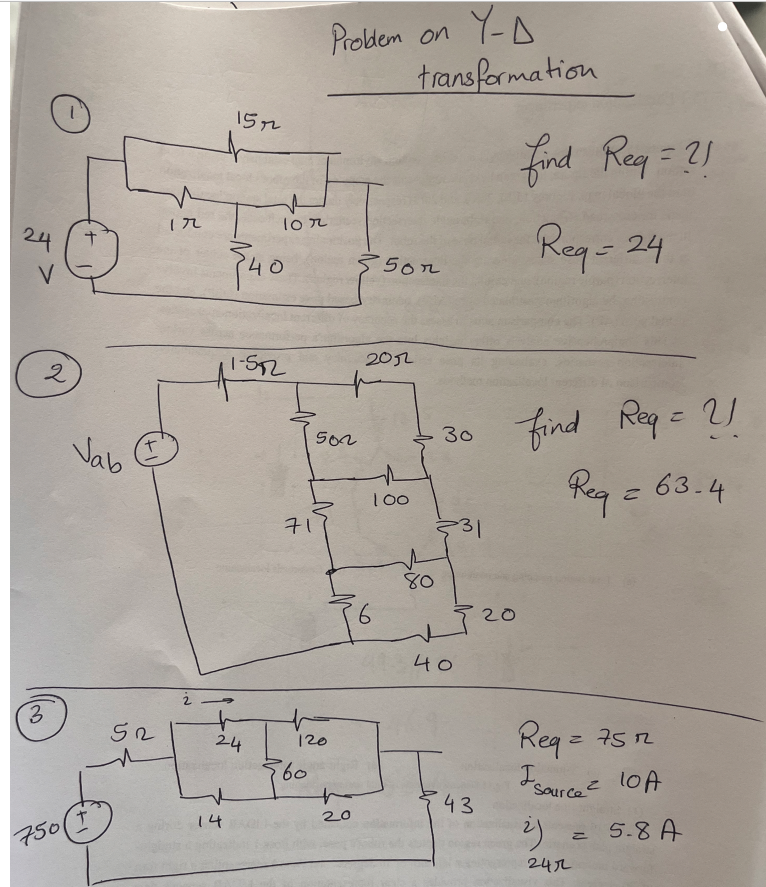 Problem on Y-Δ
transformation
1
15Ω
find Req = ?!
1Ω
10Ω
Req = 24
24
V
+
-
40
50Ω
2
1.5Ω
20Ω
find Req = ?!
Vab
+
-
50Ω
30
Req = 63.4
100
71
31
80
6
20
40
3
i →
5Ω
24
120
Req = 75Ω
60
I source = 10A
14
20
43
750
+
-
i) 24Ω = 5.8 A